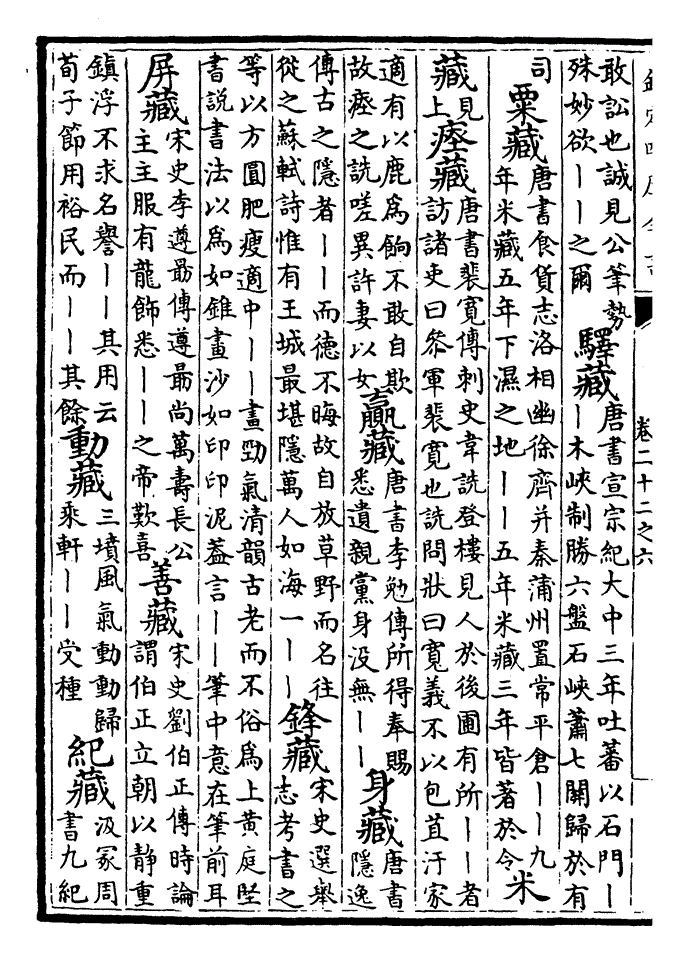 欽定四庫全書
卷二十二之六
敢訟也誠見公筆勢
殊妙欲丨丨之爾
驛藏
唐書宣宗紀大中三年吐蕃以石門丨
丨木峽制勝六盤石峽蕭七關歸於有
司
粟藏
唐書食貨志洛相幽徐齊并秦蒲州置常平倉丨丨九
年米藏五年下濕之地丨丨五年米藏三年皆著於令
米
藏
見
上
瘞藏
唐書裴寛傳刺史韋詵登樓見人於後圃有所丨丨者
訪諸吏曰叅軍裴寛也詵問狀曰寛義不以包苴汙家
適有以鹿為餉不敢自欺
故瘞之詵嗟異許妻以女
贏藏
唐書李勉傳所得奉賜
悉遺親黨身没無丨丨
身藏
唐書
隱逸
傳古之隱者丨丨而德不晦故自放草野而名往
從之蘇軾詩惟有王城最堪隱萬人如海一丨丨
鋒藏
宋史選舉
志考書之
等以方圓肥瘦適中丨丨畫勁氣清韻古老而不俗為上黄庭堅
書說書法以為如錐畫沙如印印泥葢言丨丨筆中意在筆前耳
屏藏
宋史李遵朂傳遵朂尚萬壽長公
主主服有龍飾悉丨丨之帝歎喜
善藏
宋史劉伯正傳時論
謂伯正立朝以静重
鎮浮不求名譽丨丨其用云
荀子節用裕民而丨丨其餘
動藏
三墳風氣動動歸
乘軒丨丨受種
紀藏
汲冢周
書九紀